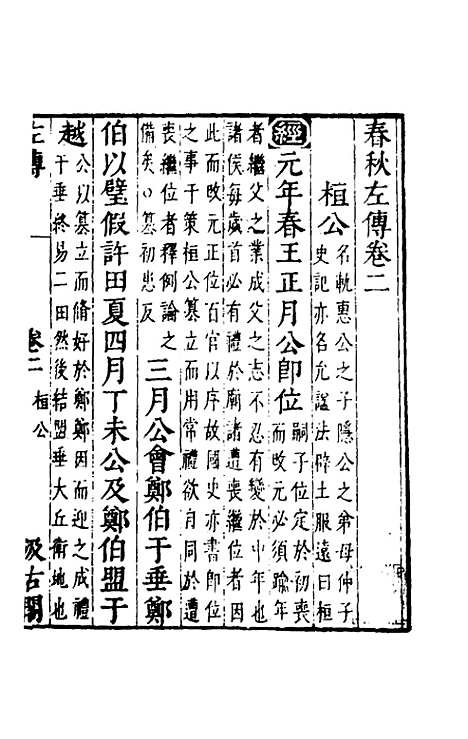 春秋左傳卷二
桓公 名軌惠公之子隱公之弟母仲子
史記亦名允諡法辟土服遠曰桓
經元年春王正月公即位 嗣子位定於初喪
而改元必須踰年
者繼父之業成父之志不忍有變於中年也
諸侯每歲首必有禮於廟諸遭喪繼位者因
此而改元正位百官以序故國史亦書即位
之事于策桓公篡立而用常禮欲自同於遭
喪繼位者釋例論之
備矣○篡初患反
三月公會鄭伯于垂鄭
伯以璧假許田夏四月丁未公及鄭伯盟于
越 公以篡立而脩好於鄭鄭因而迎之成禮
于垂終易二田然後結盟垂大丘衛地也
左傳 卷二 桓公 汲古閣